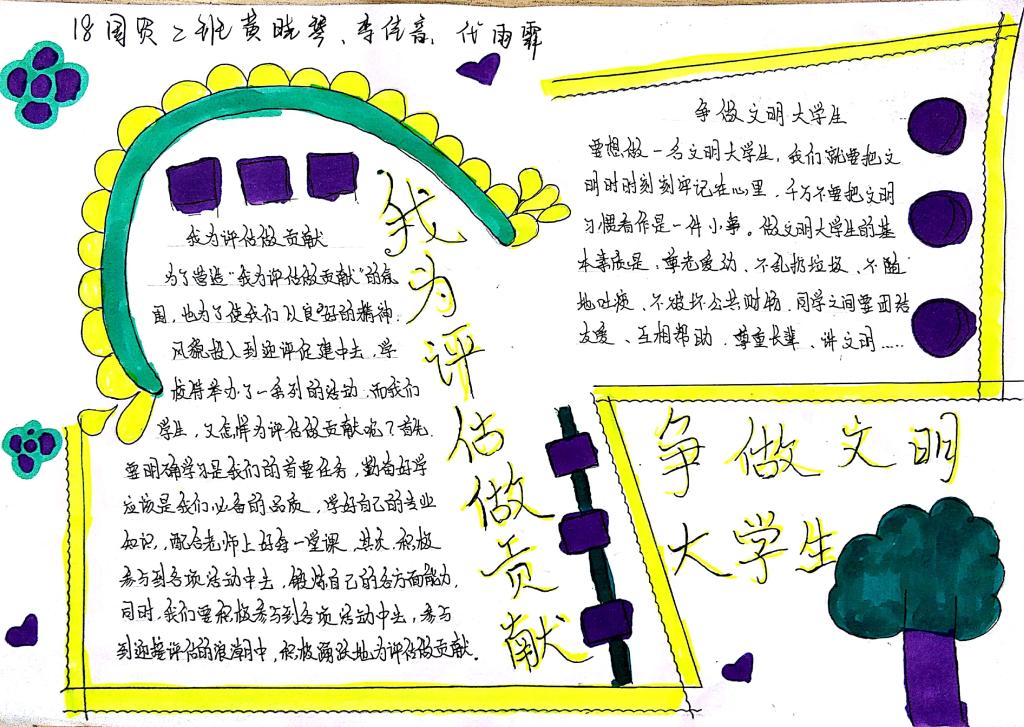 18国贸二班黄晓琴、李佳音、代雨霏
我为评估做贡献
为了营造“我为评估做贡献”的氛
围，也为了使我们以良好的精神
风貌投入到迎评促建中去，学
校将举办了一系列的活动，而我们
学生，又怎样为评估做贡献呢？首先
要明确学习是我们的首要任务，勤奋好学
应该是我们必备的品质，学好自己的专业
知识，配合老师上好每一堂课，其次，积极
参与到各项活动中去，锻炼自己的各方面能力，
同时，我们要积极参与到各项活动中去，参与
到迎接评估的浪潮中，积极踊跃地为评估做贡献。
我为评估做贡献
争做文明大学生
要想做一名文明大学生，我们就要把文
明时时刻刻牢记在心里，千万不要把文明
习惯看作是一件小事。做文明大学生的基
本素质是：尊老爱幼、不乱扔垃圾、不随
地吐痰、不破坏公共财物，同学之间要团结
友爱、互相帮助，尊重长辈、讲文明……
争做文明
大学生